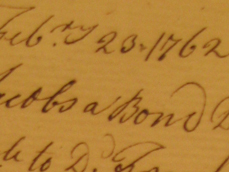 Feb.ry 23. 1762
Jacobs a Bond
to D.